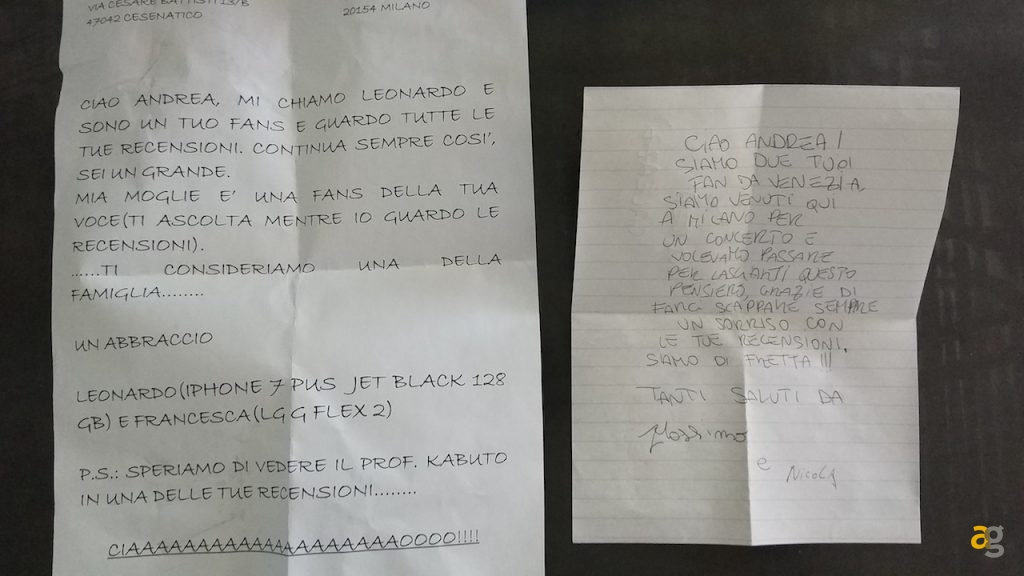 VIA CESARE BATTISTI 13/B
47042 CESENATICO
20154 MILANO
CIAO ANDREA, MI CHIAMO LEONARDO E
SONO UN TUO FANS E GUARDO TUTTE LE
TUE RECENSIONI. CONTINUA SEMPRE COSI',
SEI UN GRANDE.
MIA MOGLIE E' UNA FANS DELLA TUA
VOCE(TI ASCOLTA MENTRE IO GUARDO LE
RECENSIONI).
......TI CONSIDERIAMO UNA DELLA
FAMIGLIA........
UN ABBRACCIO
LEONARDO(IPHONE 7 PUS JET BLACK 128
GB) E FRANCESCA(LG G FLEX 2)
P.S.: SPERIAMO DI VEDERE IL PROF. KABUTO
IN UNA DELLE TUE RECENSIONI........
CIAAAAAAAAAAAAAAAAAAAAOOOO!!!!
CIAO ANDREA!
SIAMO DUE TUOI
FAN DA VENEZIA.
SIAMO VENUTI QUI
A MILANO PER
UN CONCERTO E
VOLEVAMO PASSARE
PER LASCIARTI QUESTO
PENSIERO, GRAZIE DI
FARCI SCAPPARE SEMPRE
UN SORRISO CON
LE TUE RECENSIONI.
SIAMO DI FRETTA!!!
TANTI SALUTI DA
Massimo
e
Nicola
ag